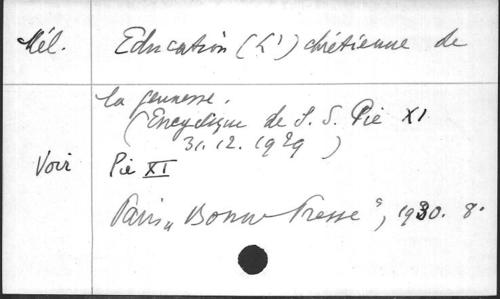 Mél. Education (L') chrétienne de
la jeunesse.
(Encyclique de S. S. Pie XI
31.12.1929)
Voir Pie XI
Paris, "Bonne Presse", 1930. 8.